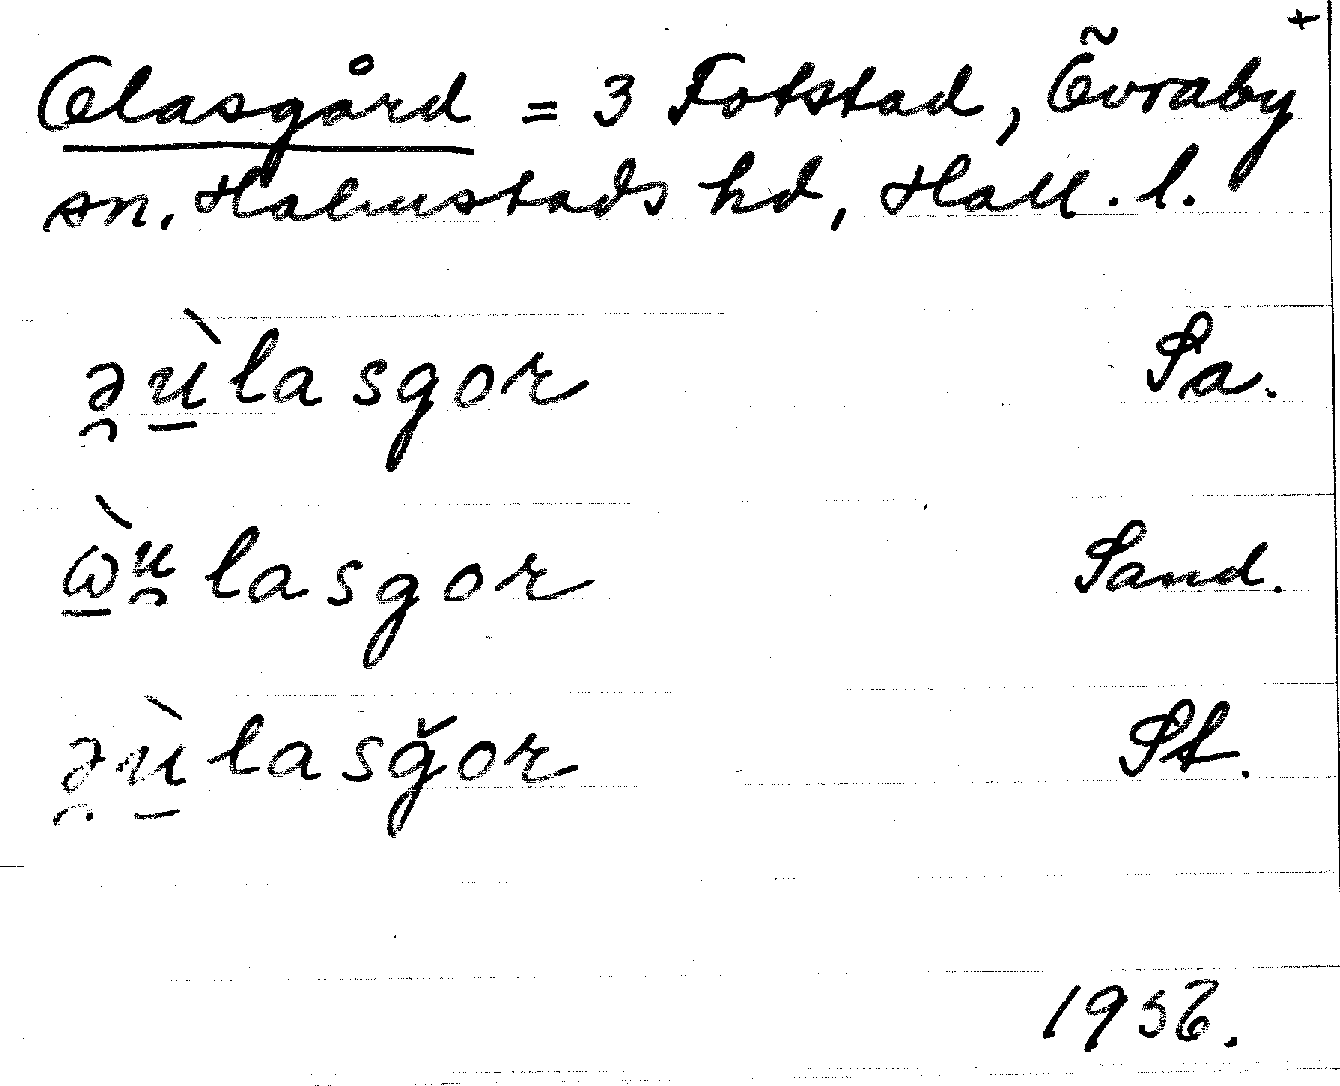 Olasgård = 3 Fotstad, Övraby
sn. Halmstads hd, Hall. l.
ə̯ù̠lasgor Sa.
ὼ̠u̯lasgor Sand.
ə̯ù̠lasğor St.
1936.